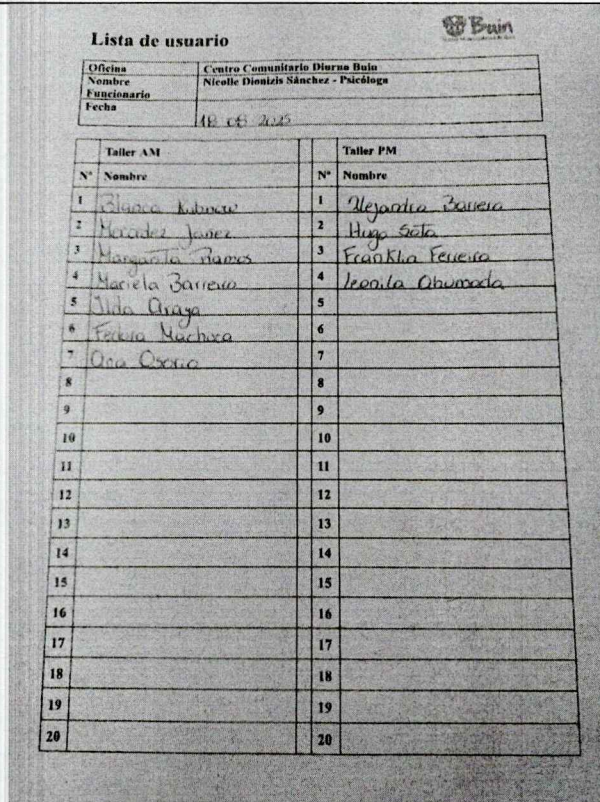 Buin
Lista de usuario
Oficina Centro Comunitario Diurno Buin
Nombre Funcionario Nicolle Dionizis Sánchez - Psicóloga
Fecha 18 08 2025
Taller AM Taller PM
N° Nombre N° Nombre
1 Blanca 1 Alejandra Barrera
2 Mercedez Jañez 2 Hugo Soto
3 Margarita Ramos 3 Franklin Ferreira
4 Mariela Barreiro 4 Leonila Ahumada
5 Ilda Araya 5
6 Fedora Machuca 6
7 Ana Osorio 7
8 8
9 9
10 10
11 11
12 12
13 13
14 14
15 15
16 16
17 17
18 18
19 19
20 20